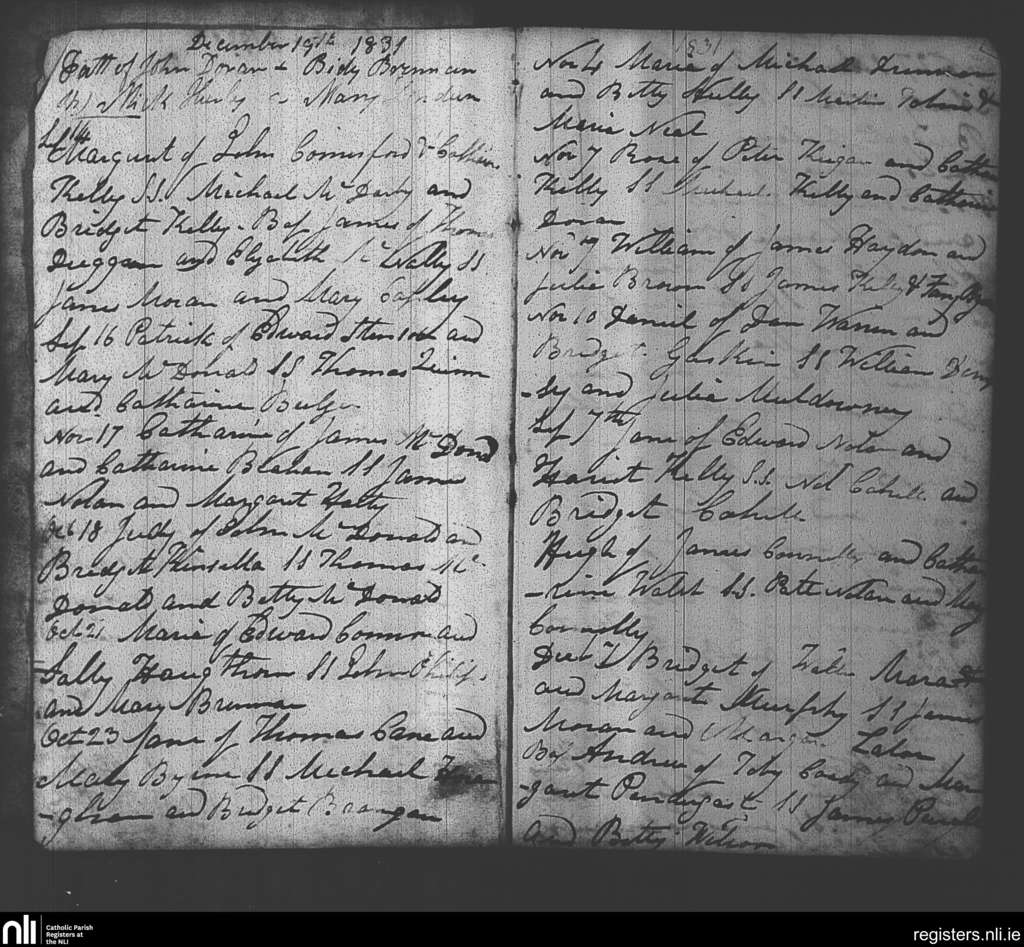 December 19th 1831
Patt of John Doran & Bidy Brennan
Mick & Mary
Sep 14
Margaret of John Comesford & Cathrine
Kelly S.S. Michael McDarby and
Bridget Kelly. Bap James of Thomas
Duggan and Elyzabeth McNally SS
James Moran and Mary
Sep 16 Patrick of Edward and
Mary McDonald SS Thomas Quinn
and Catharine Bulger
Nov 17 Catharine of James McDond
and Catharine Beahan SS James
Nolan and Margaret
Oct 18 Judy of John McDonald an
Bredget Kinsella SS Thomas Mc
Donald and Betty McDonald
Oct 21 Maria of Edward Connor and
Sally SS John
and Mary Brennan
Oct 23 Jane of Thomas Cane and
Mary Byrne SS Michael
and Bridget
1831
Nov 4 Maria of Michael
and Betty SS &
Maria Neal
Nov 7 Rose of Peter Keegan and Cathar
Kelly SS Kelly and Catharine
Doran
Nov 7 William of James Haydon and
Julia Brown SS James &
Nov 10 Daniel of Dan Warren and
Bridget Gaskin SS William Demp
-sy and Julia Muldowney
Sep 7th Jane of Edward Nolan and
Hariet Kelly S.S. Cahill and
Bridget Cahill
Hugh of James Connolly and Catha
-rine Walsh S.S. Patt Nolan and Mary
Connolly
Bridget of
and Margaret Murphy SS James
Moran and Lalor
Bap Andrew of Toby and Mar
-garet Pendergast SS James
and Betty Wilson
nli
Catholic Parish
Registers at
the NLI
registers.nli.ie